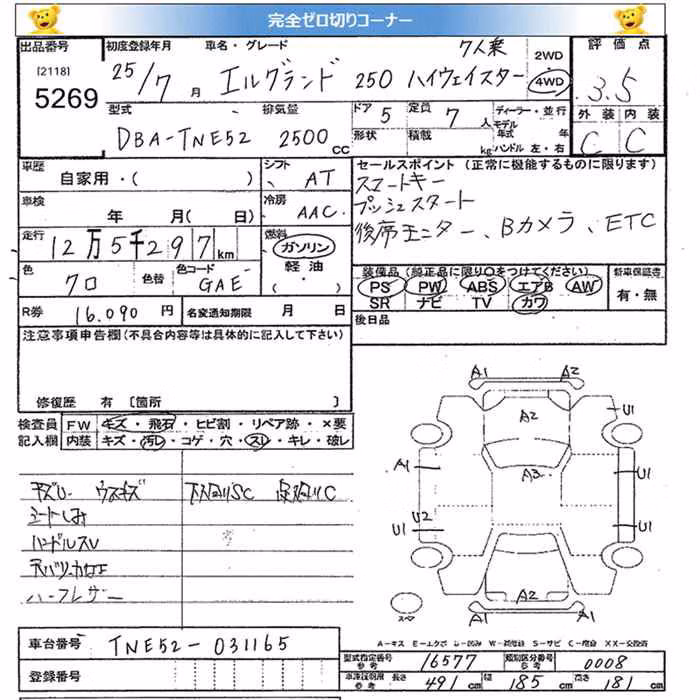 完全ゼロ切りコーナー
出品番号
[2118]
5269
初度登録年月
25/7月
車名・グレード
エルグランド 250 ハイウェイスター
7人乗
2WD
4WD
評価点
3.5
外装 内装
C C
型式
DBA-TNE52
排気量
2500cc
ドア 5
形状
定員 7人
積載 kg
ディーラー・並行
モデル年式 年
ハンドル 左・右
車歴
自家用・( )
シフト AT
車検
年 月( 日)
冷房 AAC
走行
12万5千297km
燃料
ガソリン
軽油
( ・ )
色
クロ
色替
色コード
GAE
R券 16.090円
名変通知期限 月 日
セールスポイント (正常に機能するものに限ります)
スマートキー
プッシュスタート
後席モニター、Bカメラ、ETC
装備品(純正品に限り○をつけてください)
PS PW ABS エアB AW
SR ナビ TV カワ
新車保証書
有・無
後日品
注意事項申告欄(不具合内容等は具体的に記入して下さい)
修復歴 有 〔箇所 〕
検査員記入欄
FW キズ・飛石・ヒビ割・リペア跡・×要
内装 キズ・汚レ・コゲ・穴・スレ・キレ・破レ
キズU ウスキズ
シートしみ
ハンドルスレ
ハーフレザー
A1 A2
A2
U1
A1
A3
U1 U2
U1
U1
A2
A1 A1
スペア
A-キズ E-エクボ U-凹み W-補修跡 S-サビ C-腐食 XX-交換済
車台番号 TNE52-031165
登録番号
型式指定番号 参考 16577
類別区分番号 参考 0008
車検証明限 参考
長さ 491cm
幅 185cm
高さ 181cm